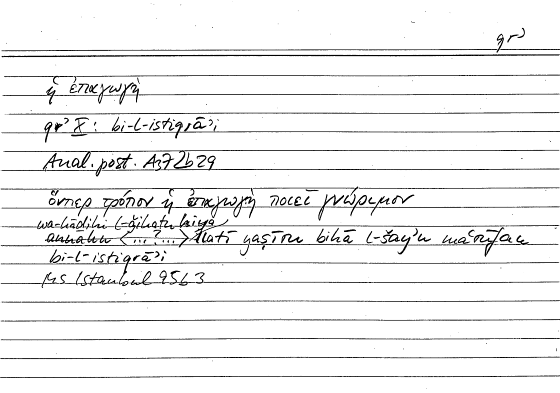 qrʾ
ἡ ἐπαγωγή
qrʾ X: bi-l-istiqrāʾi
Anal. post. A3 72b29
ὅνπερ τρόπον ἡ ἐπαγωγὴ ποιεῖ γνώριμον
wa-hāḏihi l-ǧihatu hiya
annahu <...?...> llatī yaṣīru bihā l-šayʾu maʿrūfan
bi-l-istiqrāʾi
MS Istanbul 9563